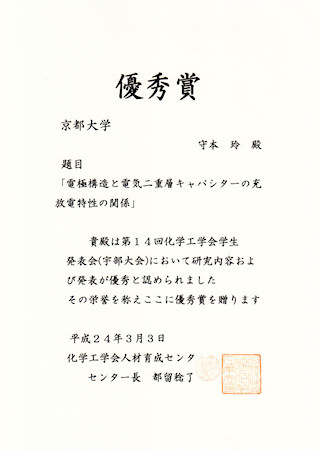 優秀賞
京都大学
守本 玲 殿
題目
「電極構造と電気二重層キャパシターの充
放電特性の関係」
貴殿は第14回化学工学会学生
発表会(宇部大会)において研究内容およ
び発表が優秀と認められました
その栄誉を称えここに優秀賞を贈ります
平成24年3月3日
化学工学会人材育成センタ
センター長 都留稔了